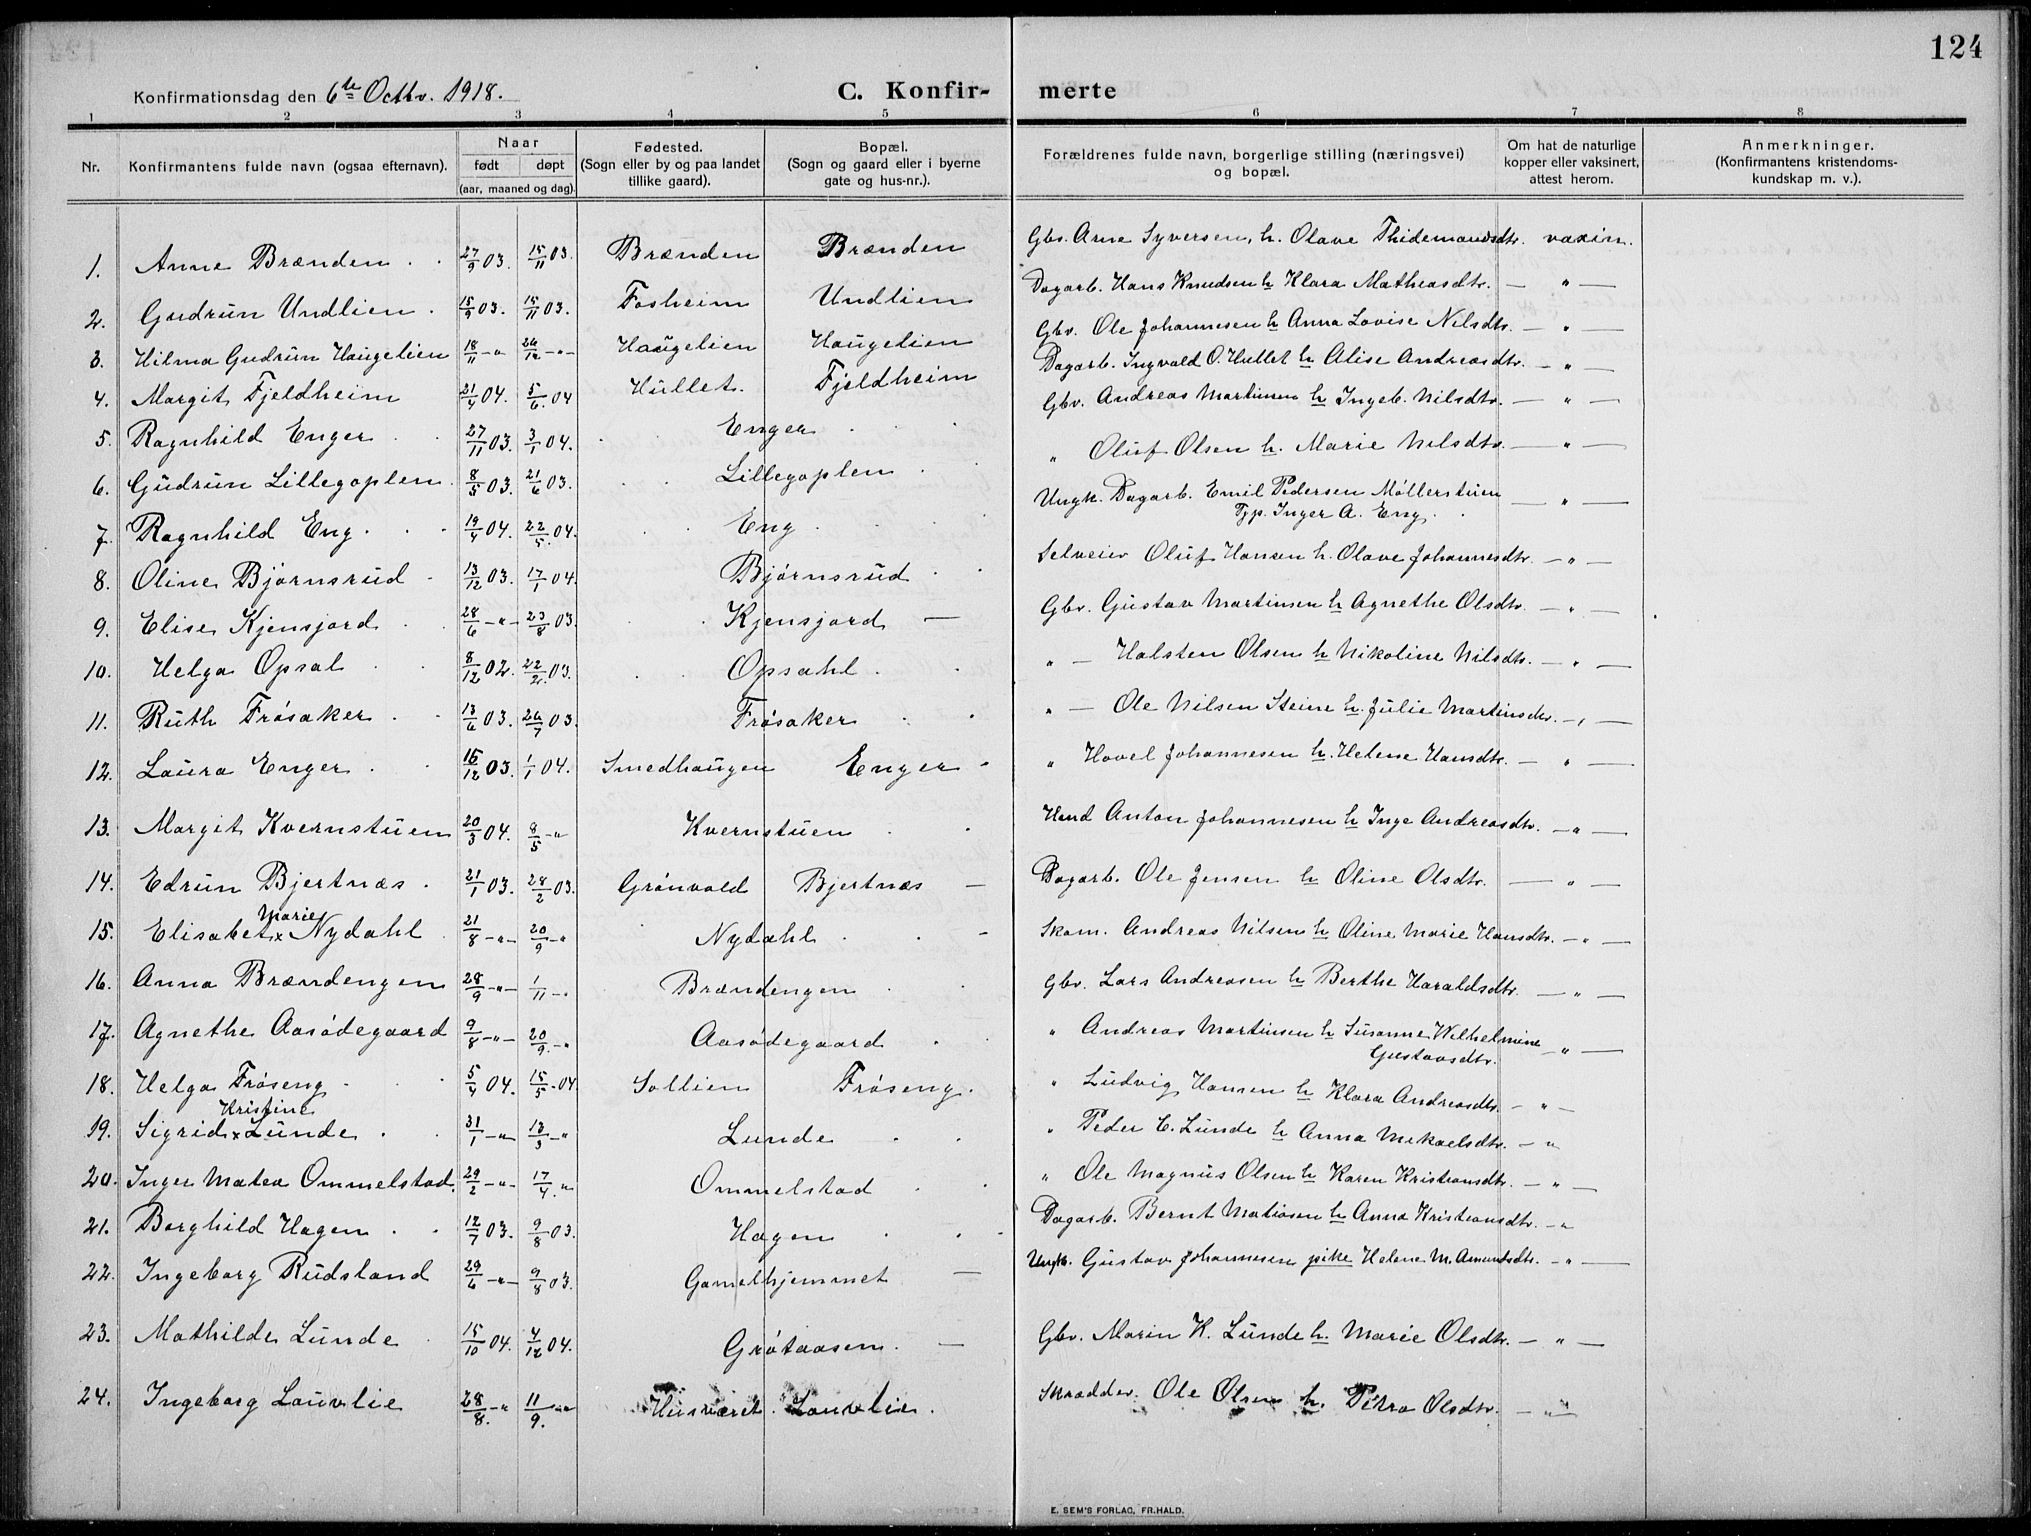 124
Konfirmationsdag den 6te Octbr. 1918.
C. Konfir- merte
1 2 3 4 5 6 7 8
Nr.
Konfirmantens fulde navn (ogsaa efternavn).
Naar
født døpt
(aar, maaned og dag).
Fødested.
(Sogn eller by og paa landet
tillike gaard).
Bopæl.
(Sogn og gaard eller i byerne
gate og hus-nr.).
Forældrenes fulde navn, borgerlige stilling (næringsvei)
og bopæl.
Om hat de naturlige
kopper eller vaksinert,
attest herom.
Anmerkninger.
(Konfirmantens kristendoms-
kundskap m. v.).
1. Anne Brænden 27/9 03. 15/11 03. Brænden Brænden Gbr. Arne Syversen, h. Olave Thidemandsdtr. vaxin.
2. Gudrun Undlien 15/9 03. 15/11 03. Fosheim Undlien Dagarb. Hans Knudsen h Klara Matheasdtr. — " —
3. Hilma Gudrun Haugelien 18/11 - " 26/12 - " - Haugelien Haugelien Gbr. Ole Johannesen h Anna Lovise Nilsdtr. — " —
4. Margit Fjeldheim 21/4 04. 5/6. 04 Hullet. Fjeldheim Dagarb. Ingvald O. Hullet h Alise Andreasdtr. — " —
5. Ragnhild Enger 27/11 03. 3/1 04. Enger Gbr. Andreas Martinsen h Ingeb. Nilsdtr. — " —
6. Gudrun Lillegoplen 8/5 03. 21/6 03. Lillegoplen " Oluf Olsen h. Marie Nilsdtr. — " —
7. Ragnhild Eng 19/4 04. 22/5. 04. Eng Ungk. Dagarb. Emil Pedersen Møllerstuen — " —
Pp. Inger A. Eng.
8. Oline Bjørnsrud 13/12 03. 17/1 04. Bjørnsrud Selveier Oluf Hansen h. Olave Johannesdtr. — " —
9. Elise Kjensjord 28/6 - " - 23/8 03. Kjensjord — Gbr. Gustav Martinsen h Agnethe Olsdtr. — " —
10. Helga Opsal 8/12 02. 22/2. 03. Opsahl " — Halsten Olsen h Nikoline Nilsdtr. — " —
11. Ruth Frøsaker 13/6 03. 26/7 03. Frøsaker " — Ole Nilsen Steine h. Julie Martinsdtr. — " —
12. Laura Enger 16/12 03. 1/1 04. Smedhaugen Enger " Hovel Johannesen h. Helene Hansdtr. — " —
13. Margit Kvernstuen 20/3 04. 8/5 - " Kvernstuen Hand Anton Johannesen h Inge Andreasdtr. — " —
14. Edrun Bjertnæs 21/1 03. 28/2 03. Grønvold Bjertnæs — Dagarb. Ole Jensen h Oline Olsdtr. — " —
Marie
15. Elisabet x Nydahl 21/8 - " - 20/9 - " Nydahl Skom. Andreas Nilsen h Oline Marie Hansdtr. — " —
16. Anna Brændengen 28/9 - " - 1/11 - " Brændengen Gbr. Lars Andreasen h Berthe Haraldsdtr. — " —
17. Agnethe Aasødegaard 9/8 - " - 20/9. - " Aasødegaard " Andreas Martinsen h Susanne Wilhelmine — " —
Gustavsdtr.
18. Helga Frøseng 5/4 04. 15/5 - 04 Sollien Frøseng. " Ludvig Hansen h Klara Andreasdtr. — " —
Kristine
19. Sigrid x Lunde 31/1 - " 13/3 - " Lunde " Peder E. Lunde h Anna Mikaelsdtr. — "
20. Inger Matea Ommelstad. 29/2 - " - 17/4. " Ommelstad " Ole Magnus Olsen h Karen Kristiansdtr. — " —
21. Borghild Hagen 12/7 03. 9/8 03. Hagen Dagarb. Bernt Matiasen h Anna Kristiansdtr. — "
22. Ingeborg Rudsland 29/6 - " - 9/8 03. Gamelhjemmet — Ungk. Gustav Johannesen pike Helene M. Amundsdtr. — " —
23. Mathilde Lunde 15/10 04. 4/12 04. Grøtaasen. — Gbr. Marin K. Lunde h. Marie Olsdtr. — " —
24. Ingeborg Lauvlie 28/8. - " 11/9. - " Husværet Lauvlie. Skrædder. Ole Olsen h. Petra Olsdtr. — " —
E. SEM'S FORLAG, FR.HALD.